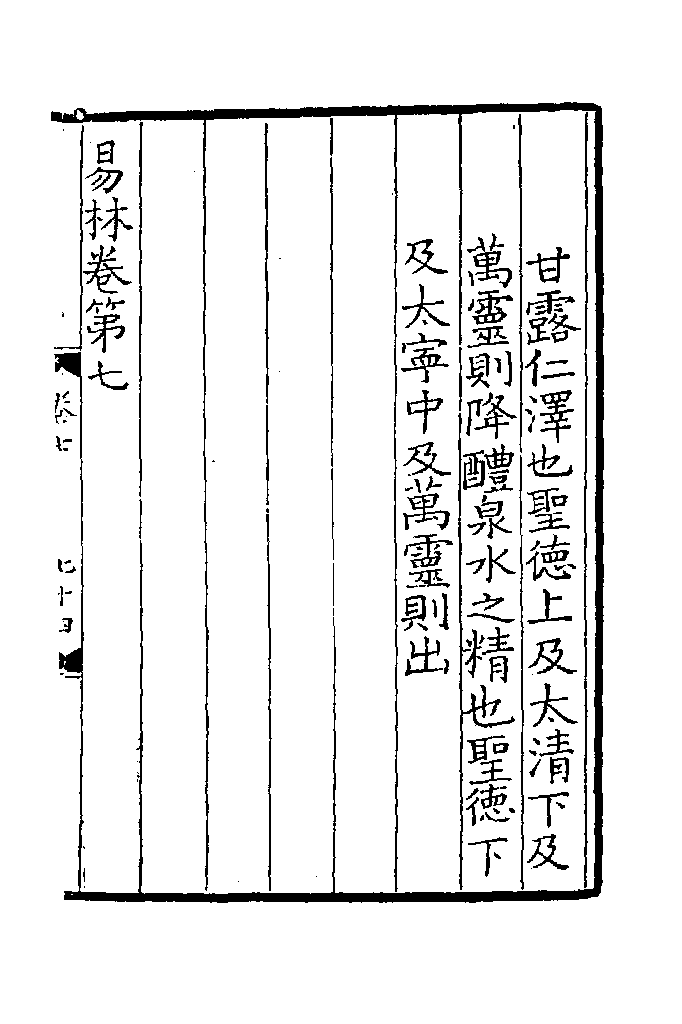 甘露仁澤也聖德上及太清下及
萬靈則降醴泉水之精也聖德下
及太寧中及萬靈則出
易林卷第七
卷七
七十四